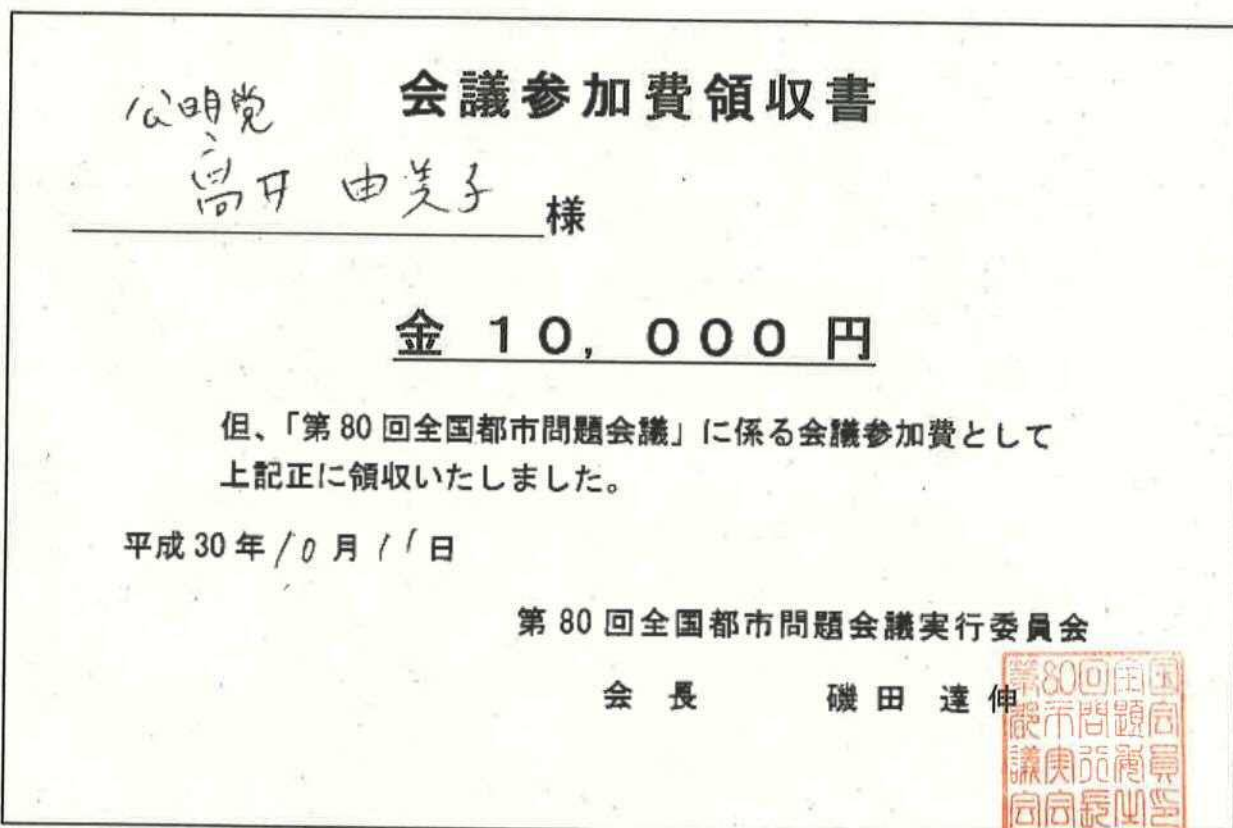 会議参加費領収書
公明党
高井 由美子 様
金 10,000 円
但、「第 80 回全国都市問題会議」に係る会議参加費として
上記正に領収いたしました。
平成 30 年 10 月 11 日
第 80 回全国都市問題会議実行委員会
会 長 磯 田 達 伸
第80回全国
都市問題会
議実行委員
会会長之印